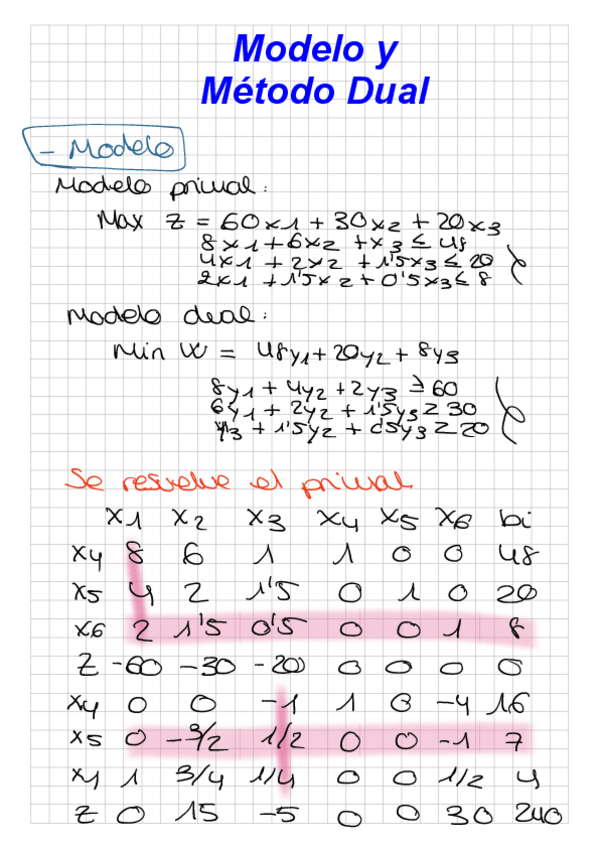 Modelo y
Método Dual
- Modelo
Modelo primal:
Max Z = 60x1 + 30x2 + 20x3
8x1 + 6x2 + x3 ≤ 48
4x1 + 2x2 + 1'5x3 ≤ 20
2x1 + 1'5x2 + 0'5x3 ≤ 8
Modelo dual:
Min W = 48y1 + 20y2 + 8y3
8y1 + 4y2 + 2y3 ≥ 60
6y1 + 2y2 + 1'5y3 ≥ 30
+ 1'5y2 + 0'5y3 ≥ 20
Se resuelve el primal
x1 x2 x3 x4 x5 x6 bi
x4 8 6 1 1 0 0 48
x5 4 2 1'5 0 1 0 20
x6 2 1'5 0'5 0 0 1 8
Z -60 -30 -20 0 0 0 0
x4 0 0 -1 1 0 -4 16
x5 0 -3/2 1/2 0 0 -1 7
x1 1 3/4 1/4 0 0 1/2 4
Z 0 15 -5 0 0 30 240